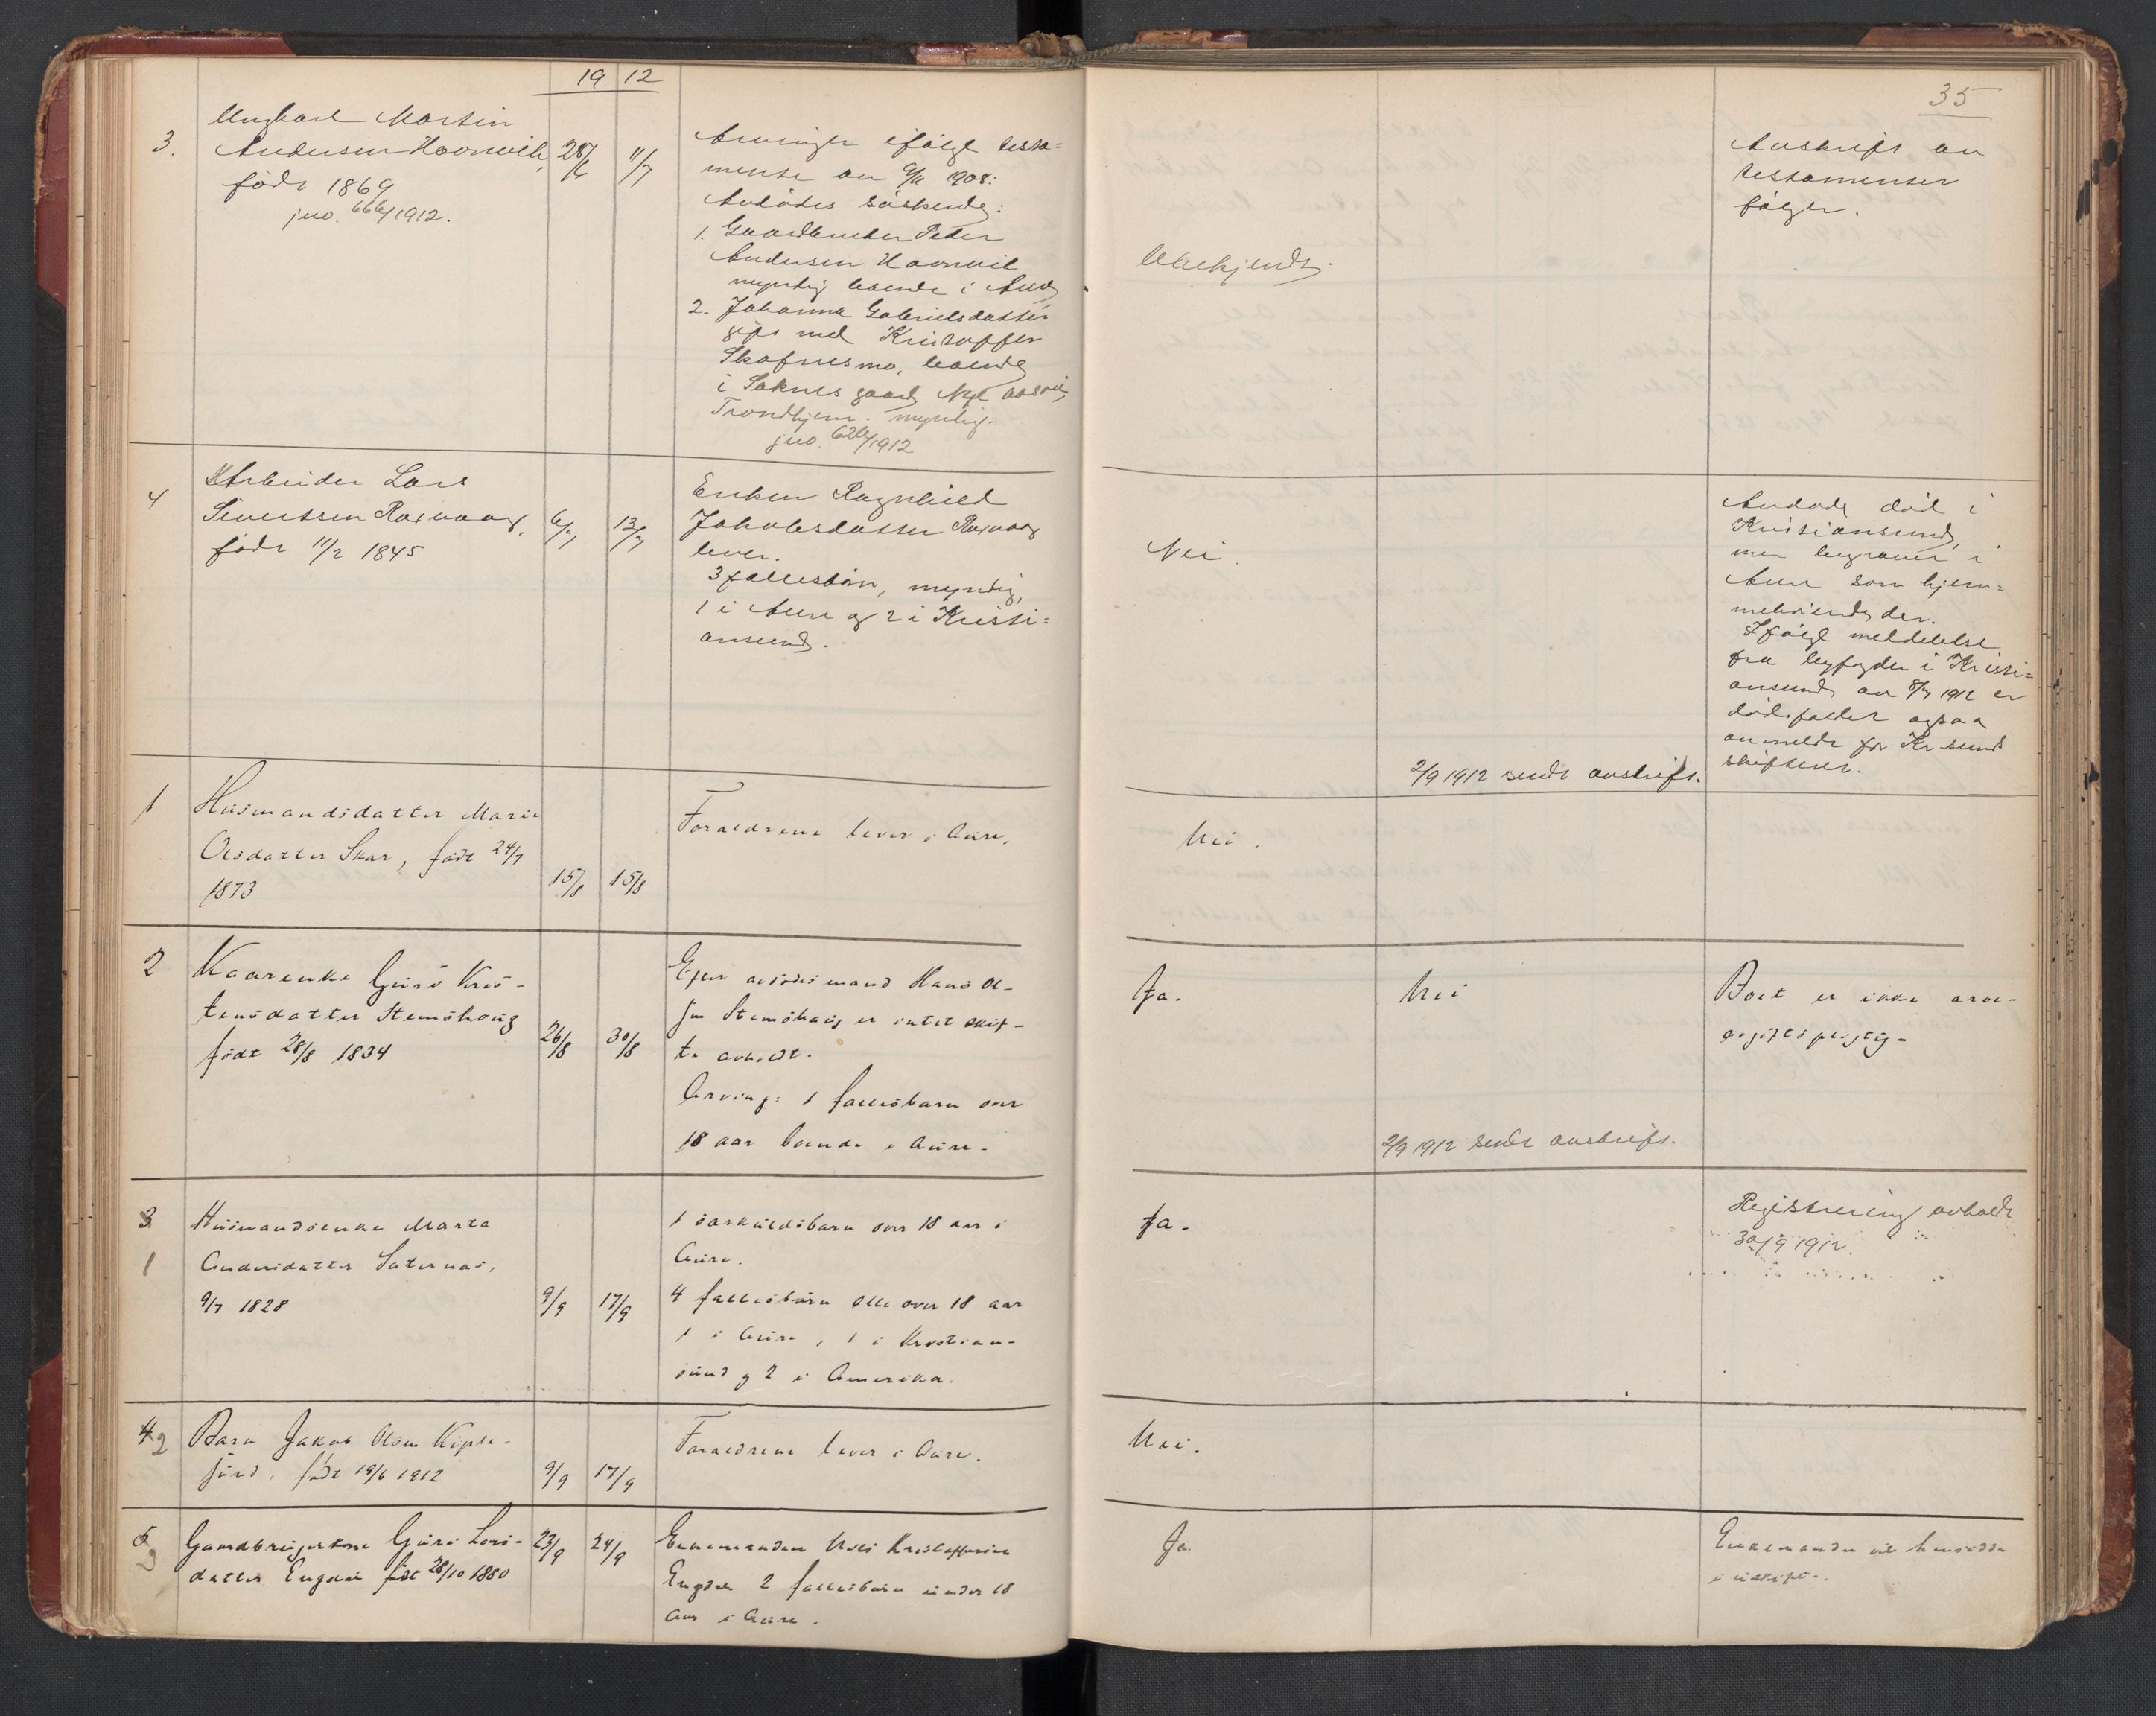 19 12
3.
Ungkarl Martin
Andersen Havnvik,
født 1869
jno. 666/1912.
28/6
11/7
Arvinger ifølge testa=
mente av 9/11 1908:
Avdødes søskende:
1. Gaardbruker Peder
Andersen Havnvik
myndig boende i Aure
2. Johanna Gabrielsdatter
gift med Kristoffer
Skafnesmo, boende
i Saknes gaard,
Trondhjem. myndig.
jno. 626/1912
Ubekjendt.
35
Avskrift av
testamentet
følger.
4
Arbeider Lars
Sivertsen Rosvaag,
født 11/2 1845
6/7
13/7
Enken Ragnhild
Jakobsdatter Rosvaag
lever.
3 fællesbørn, myndig,
1 i Aure og 2 i Kristi=
ansund.
Nei.
2/9 1912 sendt avskrift.
Avdøde død i
Kristiansund,
men begravet i
Aure som hjem=
mehørende der.
Ifølge meddelelse
fra byfogden i Kristi=
ansund av 8/7 1912 er
dødsfaldet ogsaa
anmeldt for Kr.sund
skifteret.
1
Husmandsdatter Marie
Olsdatter Skar, født 24/7
1873
15/8
15/8
Forældrene lever i Aure.
Nei.
2
Kaarenke Guri Kris-
tensdatter Stemshoug
født 28/8 1834
26/8
30/8
Efter avdødes mand Hans Ol-
sen Stemshaug er intet skif-
te avholdt.
Arving: 1 fællesbarn over
18 aar boende i Aure.
Ja.
Nei
2/9 1912 sendt avskrift.
Boet er ikke arve-
avgiftspligtig.
3
1
Husmandsenke Marta
Andersdatter Saternes,
9/7 1828
9/9
17/9
1 særkuldsbarn over 18 aar i
Aure.
4 fællesbørn alle over 18 aar
1 i Aure, 1 i Kristian-
sund og 2 i Amerika.
Ja.
Registrering avholdt
30/9 1912.
4 2
Barn Jakob Olsen Kiple-
sund, født 19/6 1912
9/9
17/9
Forældrene lever i Aure.
Nei.
5
3
Gaardbrukerkone Guri Lars-
datter Engdal født 28/10 1880
23/9
24/9
Enkemanden Kristoffersen
Engdal 2 fællesbørn under 18
aar i Aure.
Ja.
Enkemanden vil hensidde
i uskifte.